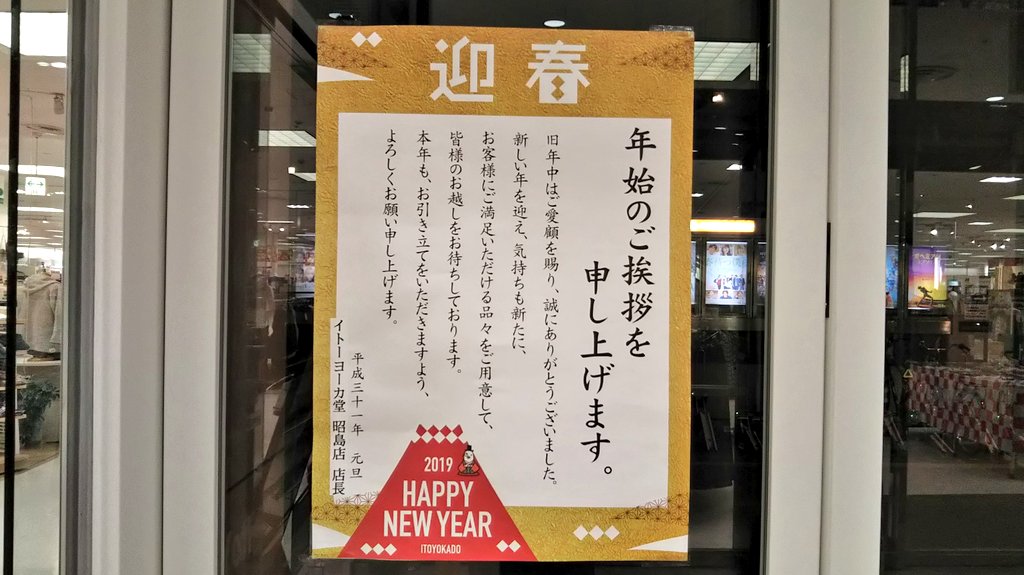 迎春
年始のご挨拶を
申し上げます。
旧年中はご愛顧を賜り、誠にありがとうございました。
新しい年を迎え、気持ちも新たに、
お客様にご満足いただける品々をご用意して、
皆様のお越しをお待ちしております。
本年も、お引き立てをいただきますよう、
よろしくお願い申し上げます。
平成三十一年 元旦
イトーヨーカ堂 昭島店 店長
2019
HAPPY
NEW YEAR
ITOYOKADO